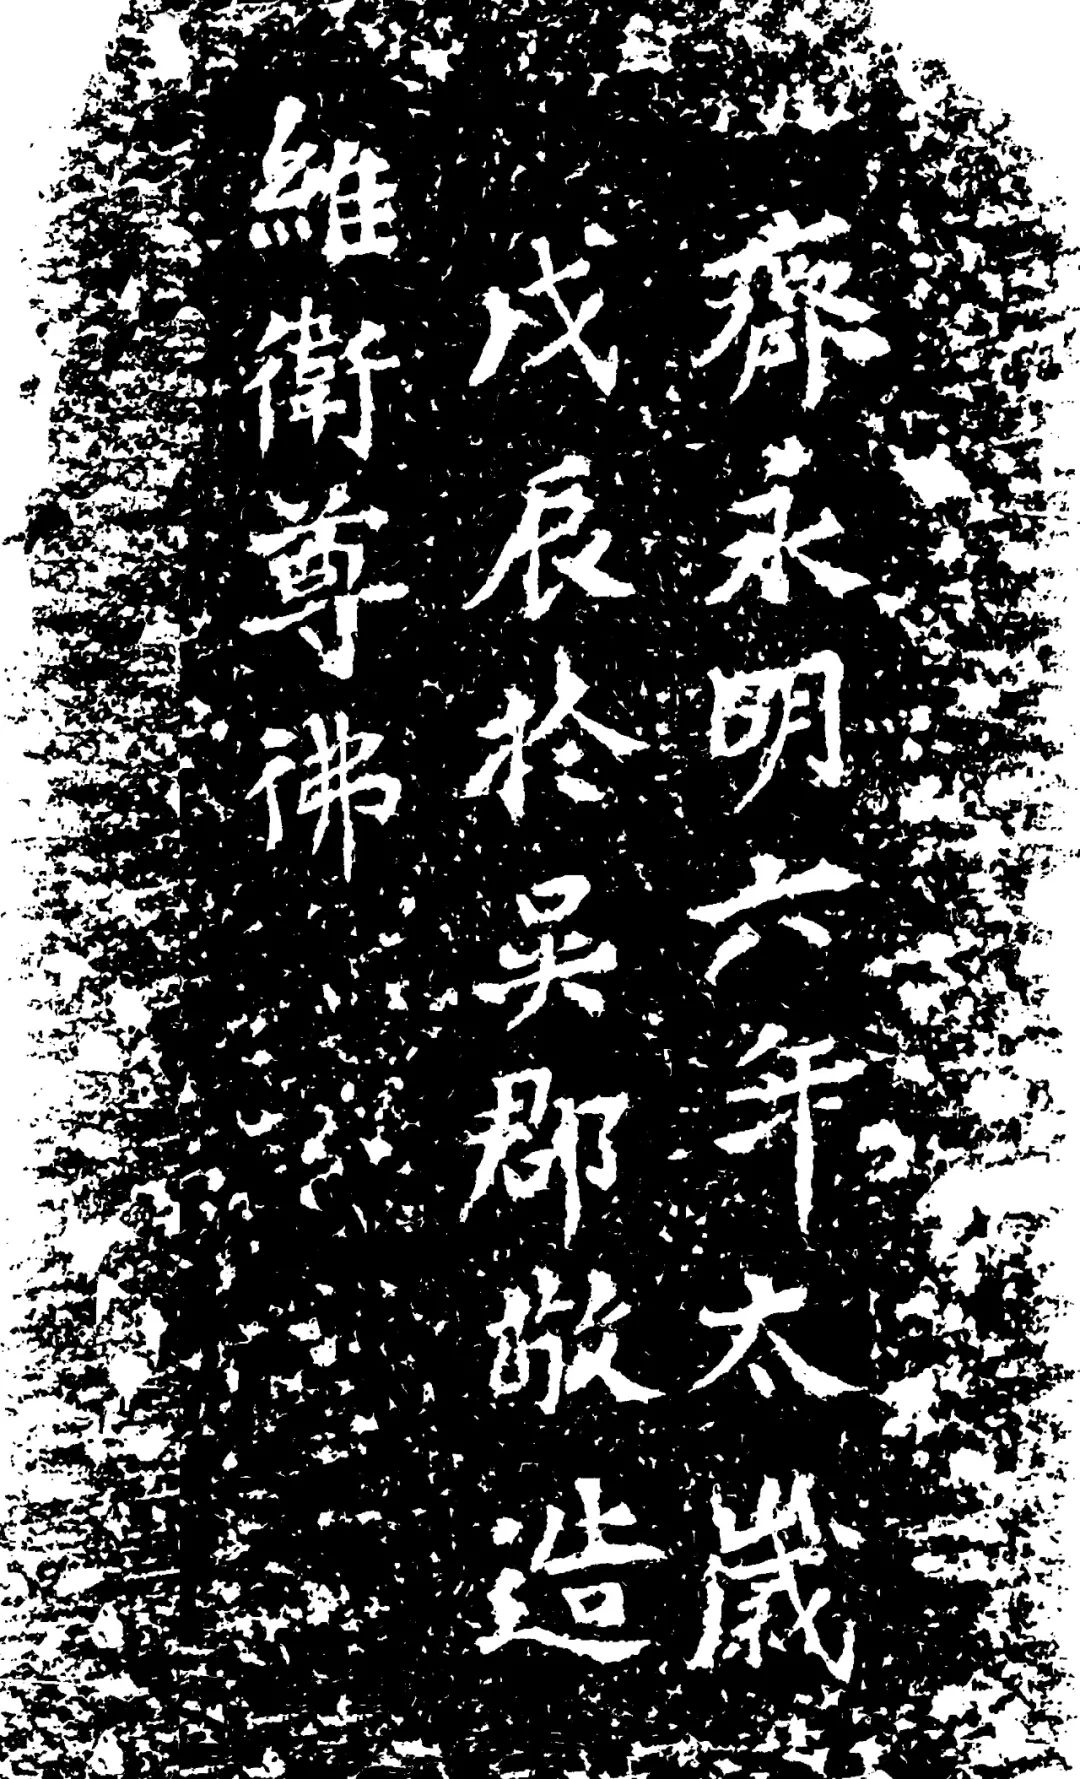 齊永明六年太歲
戊辰於吳郡敬造
維衛尊佛